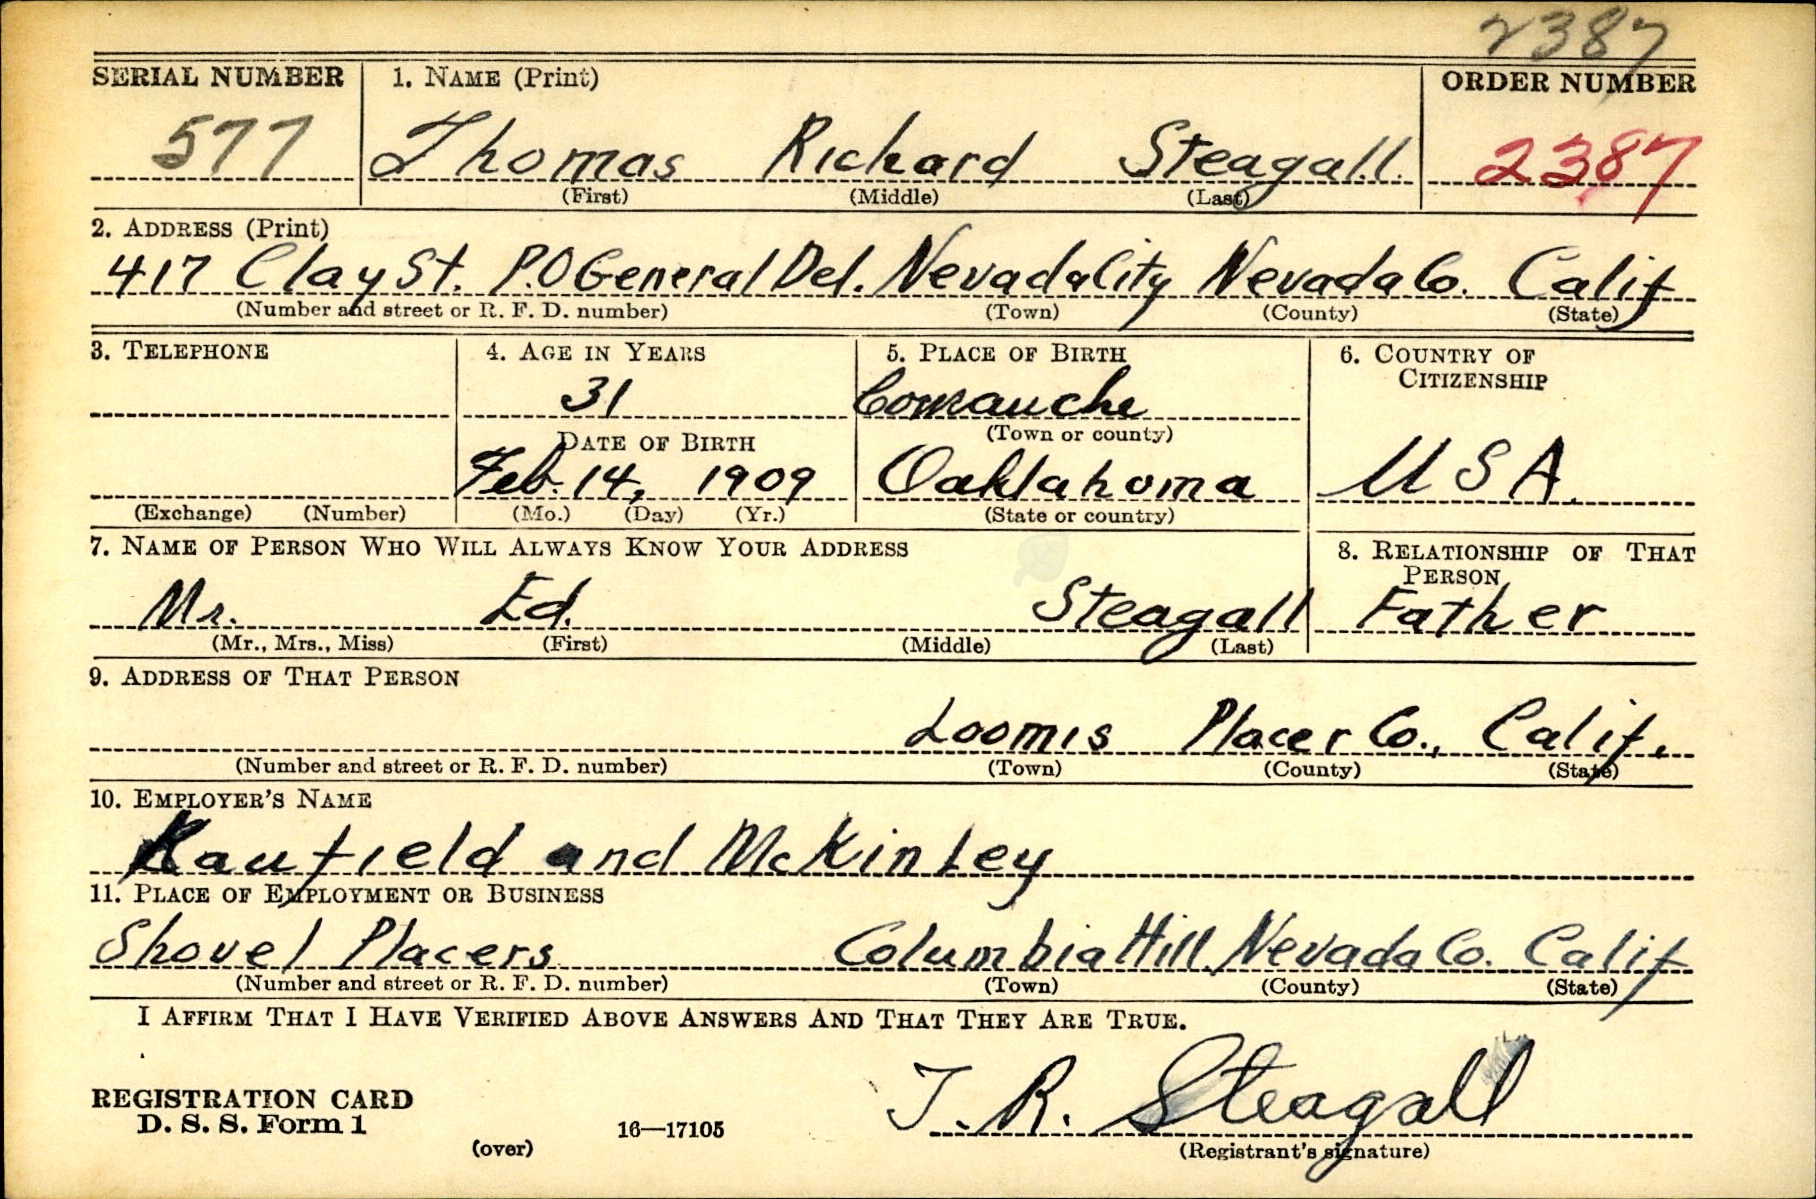 2387
SERIAL NUMBER 1. NAME (Print) ORDER NUMBER
577 Thomas Richard Steagall. 2387
(First) (Middle) (Last)
2. ADDRESS (Print)
417 Clay St. P.O General Del. Nevada City Nevada Co. Calif
(Number and street or R. F. D. number) (Town) (County) (State)
3. TELEPHONE 4. AGE IN YEARS 5. PLACE OF BIRTH 6. COUNTRY OF
CITIZENSHIP
31 Comanche
DATE OF BIRTH (Town or county)
Feb. 14, 1909 Oaklahoma U S A.
(Exchange) (Number) (Mo.) (Day) (Yr.) (State or country)
7. NAME OF PERSON WHO WILL ALWAYS KNOW YOUR ADDRESS 8. RELATIONSHIP OF THAT
PERSON
Mr. Ed. Steagall Father
(Mr., Mrs., Miss) (First) (Middle) (Last)
9. ADDRESS OF THAT PERSON
Loomis Placer Co., Calif.
(Number and street or R. F. D. number) (Town) (County) (State)
10. EMPLOYER'S NAME
and McKinley
11. PLACE OF EMPLOYMENT OR BUSINESS
Shovel Placers Columbia Hill Nevada Co. Calif
(Number and street or R. F. D. number) (Town) (County) (State)
I AFFIRM THAT I HAVE VERIFIED ABOVE ANSWERS AND THAT THEY ARE TRUE.
REGISTRATION CARD
D. S. S. Form 1
T. R. Steagall
(over) 16—17105 (Registrant's signature)